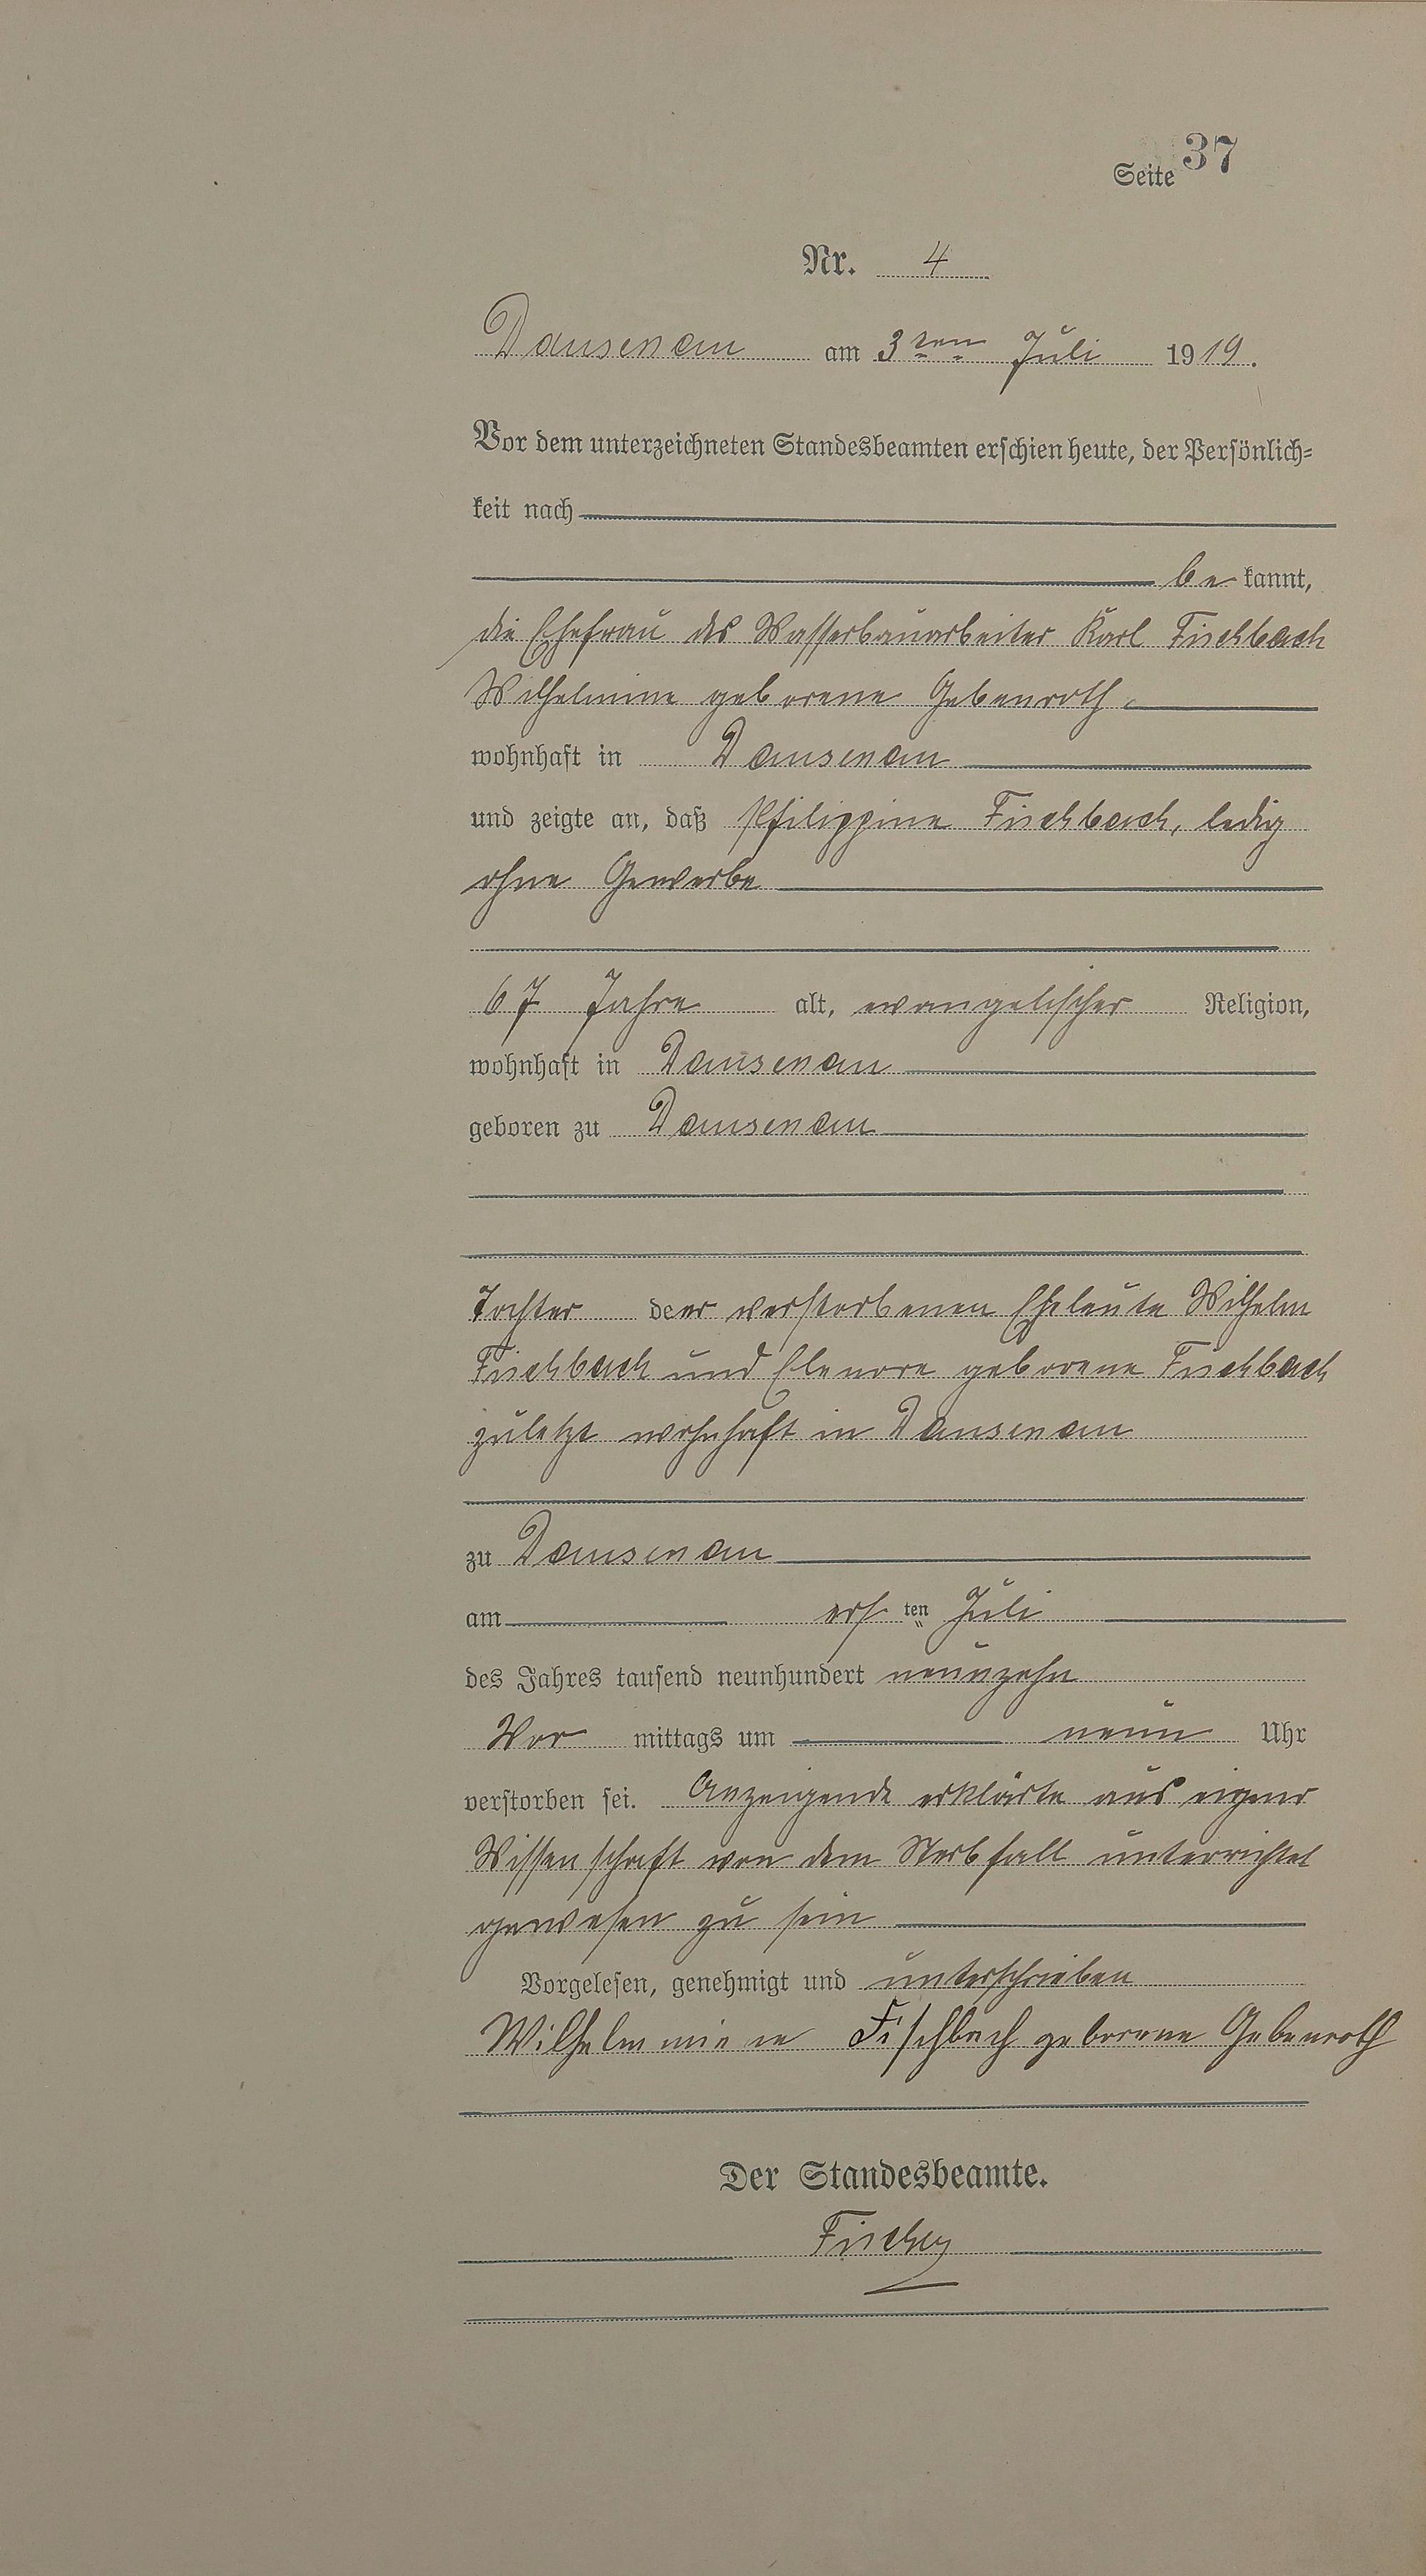 Seite 37
Nr. 4
Dausenau am 3ten Juli 1919.
Vor dem unterzeichneten Standesbeamten erschien heute, der Persönlich-
keit nach
be kannt,
die Ehefrau des Wasserbauarbeiter Karl Fischbach
Wilhelmine geborene Gebenroth
wohnhaft in Dausenau
und zeigte an, daß Philippine Fischbach, ledig
ohne Gewerbe
67 Jahre alt, evangelischer Religion,
wohnhaft in Dausenau
geboren zu Dausenau
Tochter der verstorbenen Eheleute Wilhelm
Fischbach und Elenore geborene Fischbach
zuletzt wohnhaft in Dausenau
zu Dausenau
am ersten Juli
des Jahres tausend neunhundert neunzehn
Vor mittags um neun Uhr
verstorben sei. Anzeigende erklärte aus eigener
Wissenschaft von dem Sterbfall unterrichtet
gewesen zu sein
Vorgelesen, genehmigt und unterschrieben
Wilhelmine Fischbach geborene Gebenroth
Der Standesbeamte.